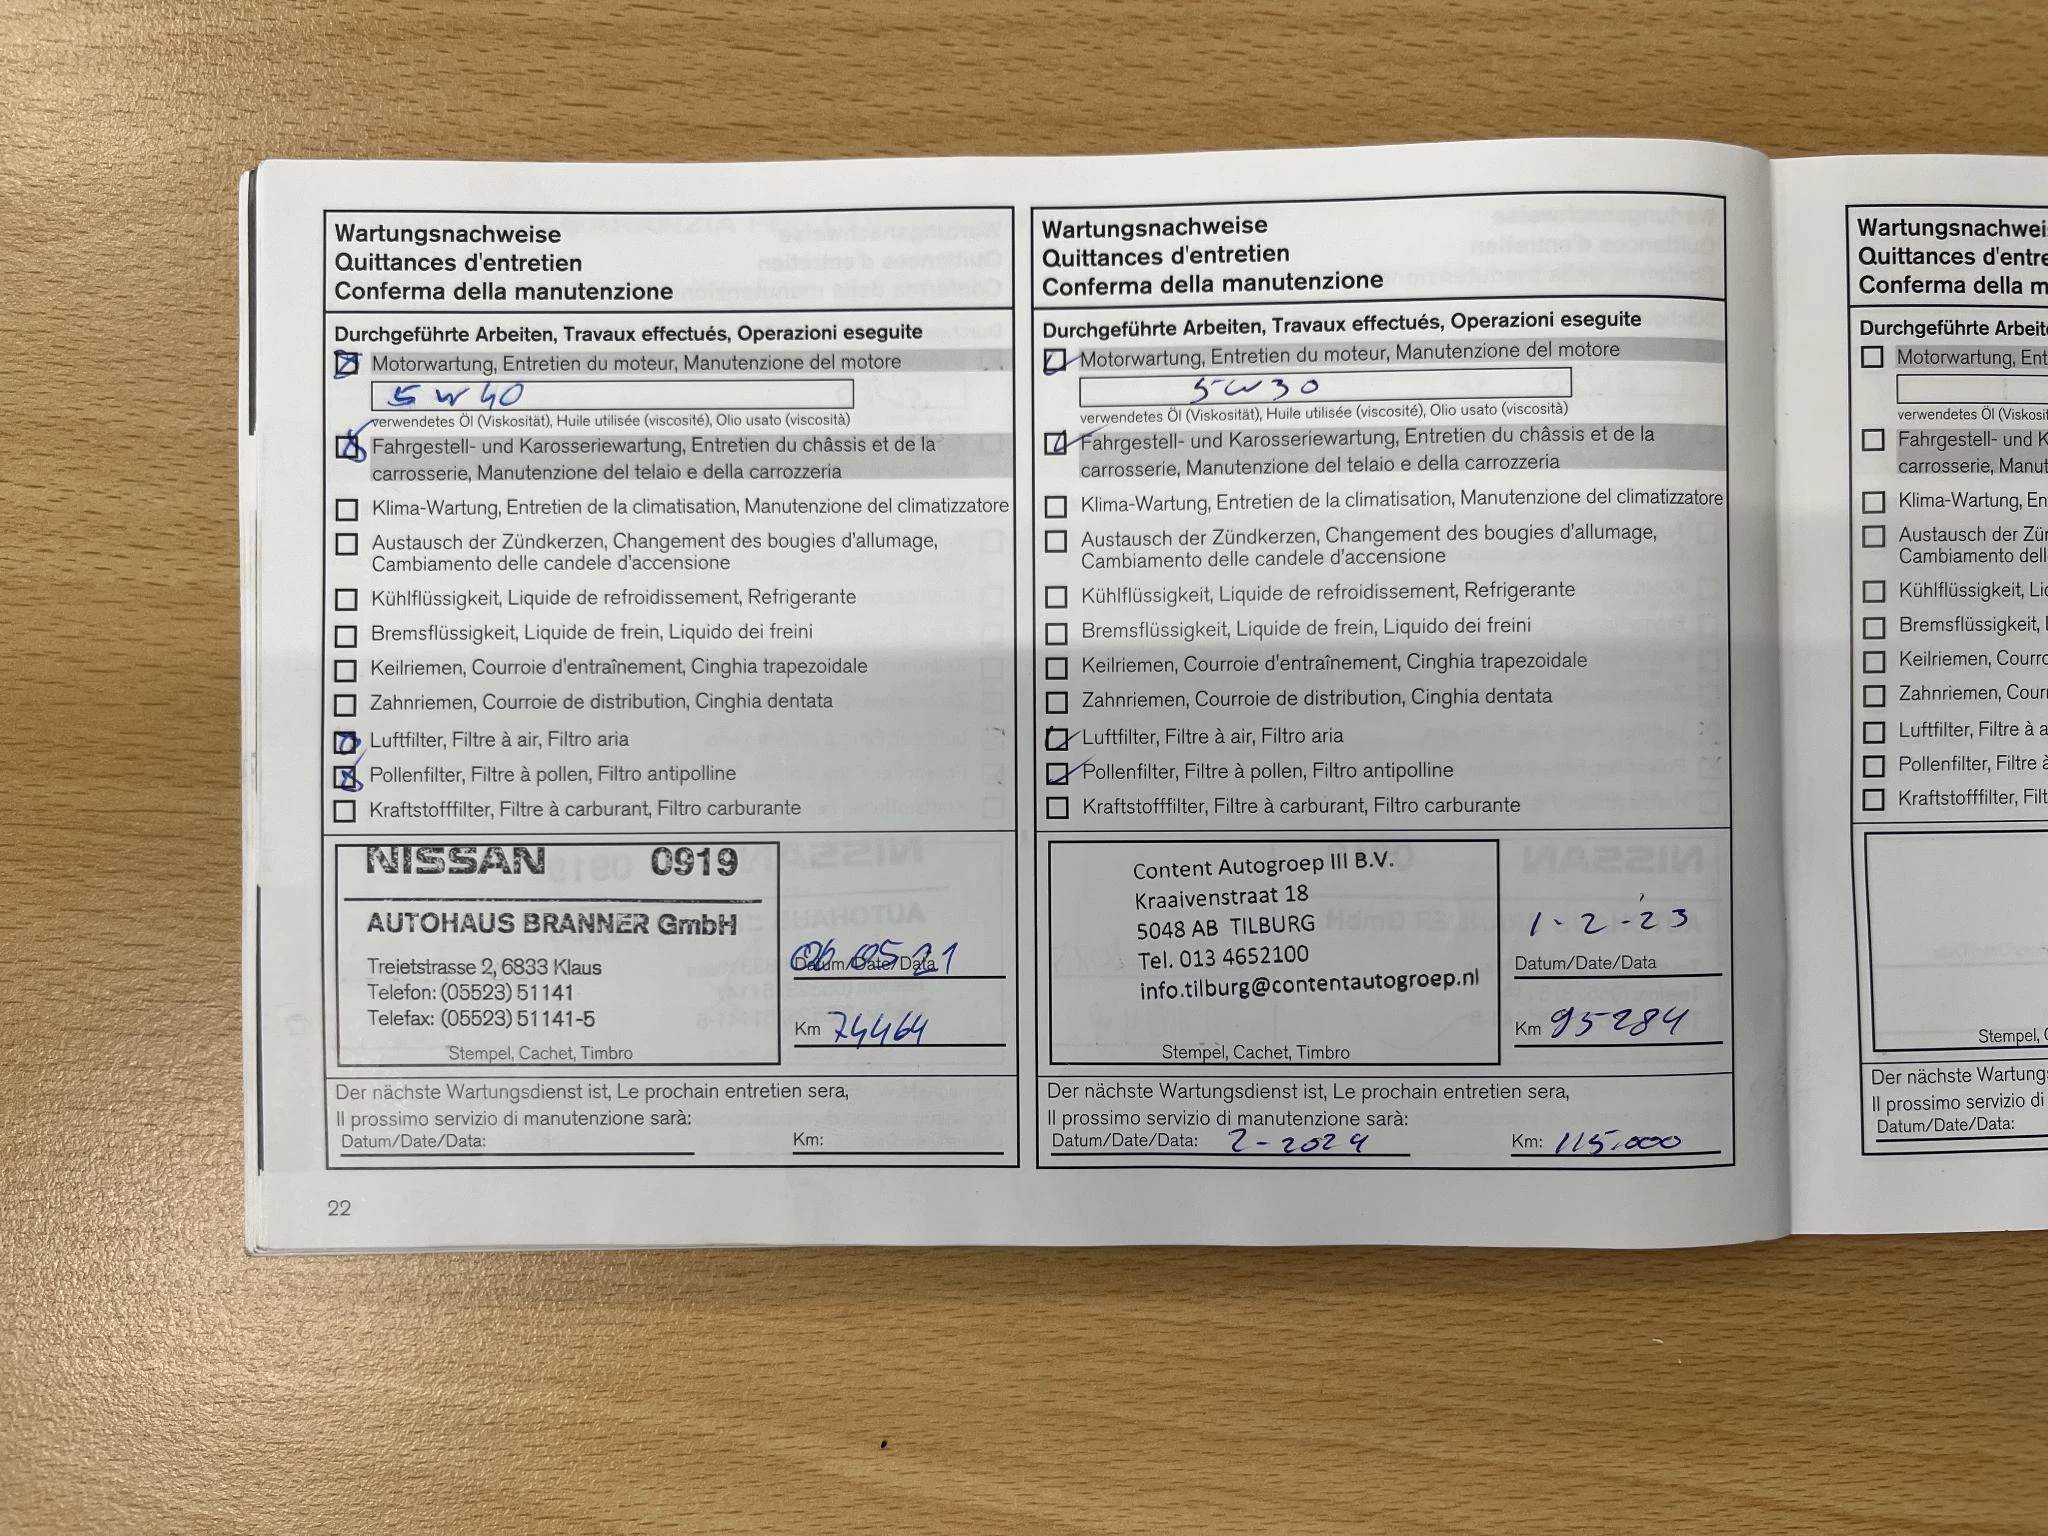 Wartungsnachweise
Quittances d'entretien
Conferma della manutenzione
Durchgeführte Arbeiten, Travaux effectués, Operazioni eseguite
Motorwartung, Entretien du moteur, Manutenzione del motore
5W40
verwendetes Öl (Viskosität), Huile utilisée (viscosité), Olio usato (viscosità)
Fahrgestell- und Karosseriewartung, Entretien du châssis et de la
carrosserie, Manutenzione del telaio e della carrozzeria
Klima-Wartung, Entretien de la climatisation, Manutenzione del climatizzatore
Austausch der Zündkerzen, Changement des bougies d'allumage,
Cambiamento delle candele d'accensione
Kühlflüssigkeit, Liquide de refroidissement, Refrigerante
Bremsflüssigkeit, Liquide de frein, Liquido dei freini
Keilriemen, Courroie d'entraînement, Cinghia trapezoidale
Zahnriemen, Courroie de distribution, Cinghia dentata
Luftfilter, Filtre à air, Filtro aria
Pollenfilter, Filtre à pollen, Filtro antipolline
Kraftstofffilter, Filtre à carburant, Filtro carburante
NISSAN 0919
AUTOHAUS BRANNER GmbH
Treietstrasse 2, 6833 Klaus
Telefon: (05523) 51141
Telefax: (05523) 51141-5
Stempel, Cachet, Timbro
06 05 21
Datum/Date/Data
Km 74464
Der nächste Wartungsdienst ist, Le prochain entretien sera,
Il prossimo servizio di manutenzione sarà:
Datum/Date/Data: Km:
22
Wartungsnachweise
Quittances d'entretien
Conferma della manutenzione
Durchgeführte Arbeiten, Travaux effectués, Operazioni eseguite
Motorwartung, Entretien du moteur, Manutenzione del motore
5W30
verwendetes Öl (Viskosität), Huile utilisée (viscosité), Olio usato (viscosità)
Fahrgestell- und Karosseriewartung, Entretien du châssis et de la
carrosserie, Manutenzione del telaio e della carrozzeria
Klima-Wartung, Entretien de la climatisation, Manutenzione del climatizzatore
Austausch der Zündkerzen, Changement des bougies d'allumage,
Cambiamento delle candele d'accensione
Kühlflüssigkeit, Liquide de refroidissement, Refrigerante
Bremsflüssigkeit, Liquide de frein, Liquido dei freini
Keilriemen, Courroie d'entraînement, Cinghia trapezoidale
Zahnriemen, Courroie de distribution, Cinghia dentata
Luftfilter, Filtre à air, Filtro aria
Pollenfilter, Filtre à pollen, Filtro antipolline
Kraftstofffilter, Filtre à carburant, Filtro carburante
Content Autogroep III B.V.
Kraaivenstraat 18
5048 AB TILBURG
Tel. 013 4652100
info.tilburg@contentautogroep.nl
Stempel, Cachet, Timbro
1-2-'23
Datum/Date/Data
Km 95284
Der nächste Wartungsdienst ist, Le prochain entretien sera,
Il prossimo servizio di manutenzione sarà:
Datum/Date/Data: 2-2024 Km: 115.000
Quittances
Conferma della
Durchgeführte
Motorwartung,
verwendetes Öl
Fahrgestell- und
carrosserie,
Klima-Wartung,
Austausch der
Cambiamento
Kühlflüssigkeit,
Bremsflüssigkeit,
Keilriemen,
Zahnriemen,
Luftfilter, Filtre à
Pollenfilter, Filtre
Kraftstofffilter,
Stempel,
Der nächste
Il prossimo servizio di
Datum/Date/Data: